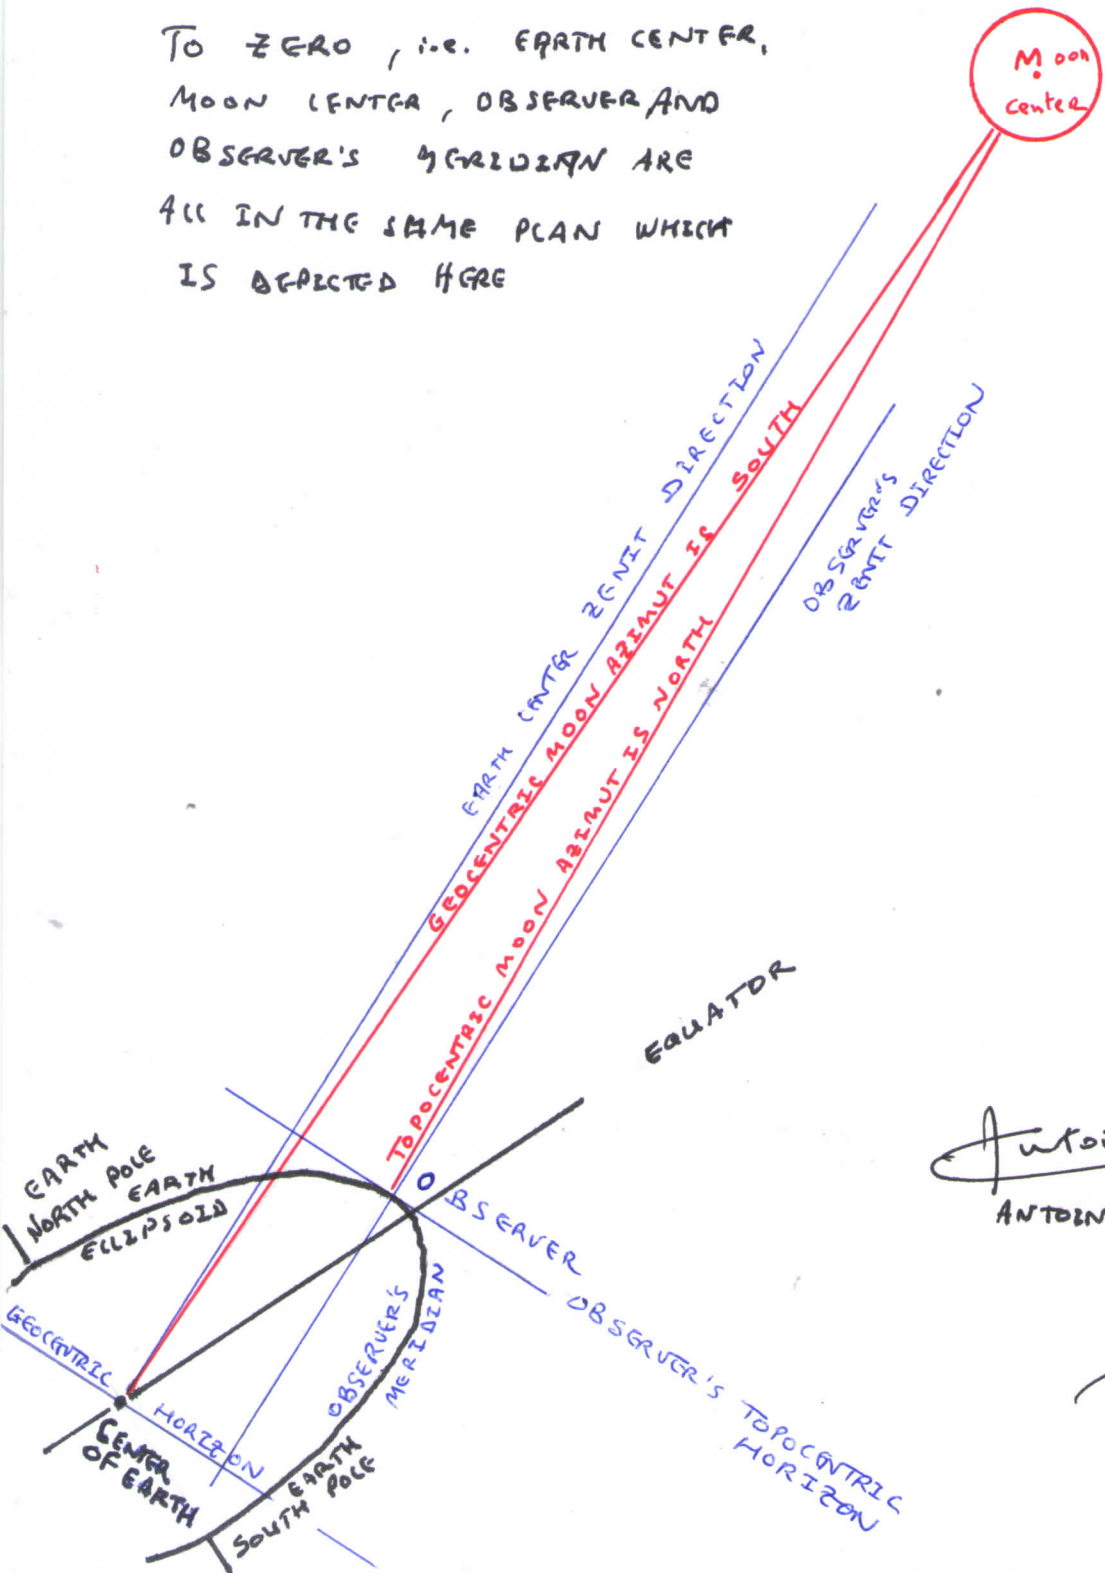 TO ZERO, i.e. EARTH CENTER,
MOON CENTER, OBSERVER AND
OBSERVER'S MERIDIAN ARE
ALL IN THE SAME PLAN WHICH
IS DEPICTED HERE
Moon
center
EARTH CENTER ZENIT DIRECTION
GEOCENTRIC MOON AZIMUT IS SOUTH
TOPOCENTRIC MOON AZIMUT IS NORTH
OBSERVER'S
ZENIT DIRECTION
EQUATOR
EARTH
NORTH POLE
EARTH
ELLIPSOID
OBSERVER
OBSERVER'S TOPOCENTRIC
HORIZON
OBSERVER'S
MERIDIAN
GEOCENTRIC HORIZON
CENTER
OF EARTH
EARTH
SOUTH POLE